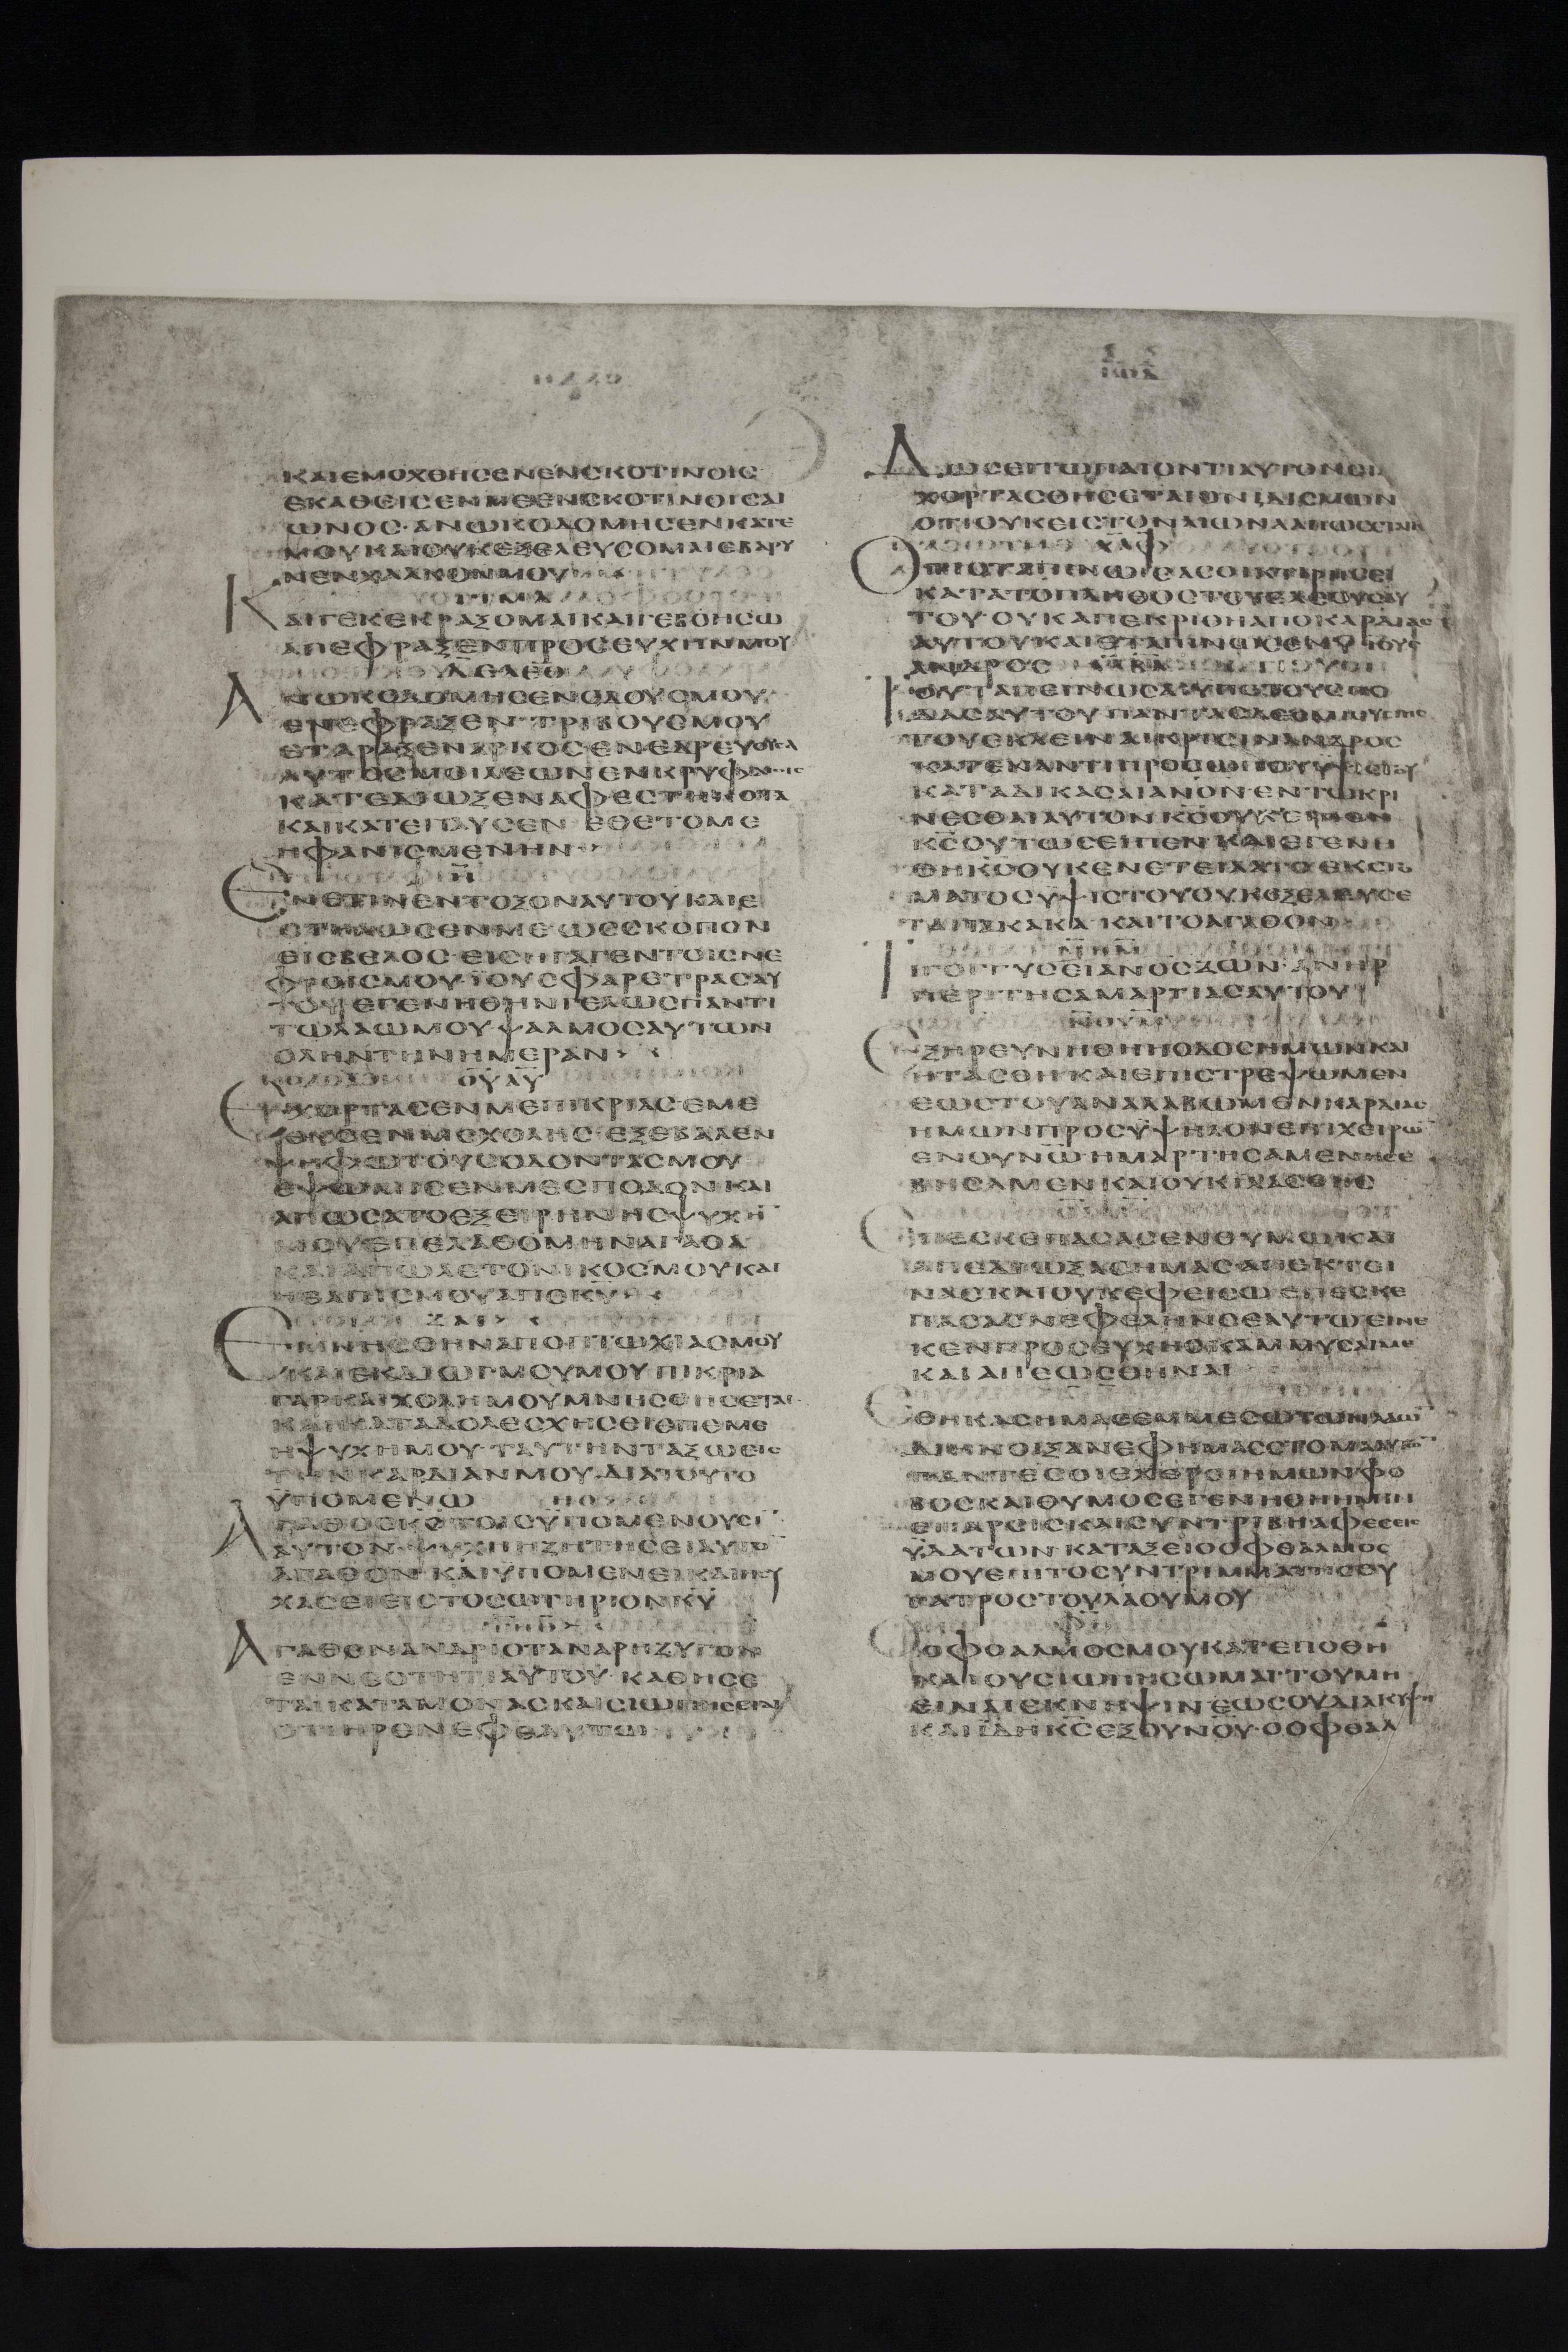 ΚΑΙΕΜΟΧΘΗСΕΝΕΝСΚΟΤΙΝΟΙС
ΕΚΑΘΕΙСΕΝΜΕΕΝСΚΟΤΙΝΟΙСΑΙ
ΩΝΟС·ΑΝΩΚΟΔΟΜΗСΕΝΚΑΤΕ
ΜΟΥΚΑΙΟΥΚΕΞΕΛΕΥСΟΜΑΙΕΒΑΡΥ
ΝΕΝΧΑΛΚΟΝΜΟΥ
ΓΙΜΛ
ΚΑΙΓΕΚΕΚΡΑΞΟΜΑΙΚΑΙΓΕΒΟΗСΩ
ΑΠΕΦΡΑΞΕΝΠΡΟСΕΥΧΗΝΜΟΥ
ΔΕΛΕΘ
ΑΝΩΚΟΔΟΜΗСΕΝΟΔΟΥСΜΟΥ
ΕΝΕΦΡΑΞΕΝΤΡΙΒΟΥСΜΟΥ
ΕΤΑΡΑΞΕΝΑΡΚΟСΕΝΕΔΡΕΥΟΥСΑ
ΑΥΤΟСΜΟΙΛΕΩΝΕΝΚΡΥΦΑΙΟΙС
ΚΑΤΕΔΙΩΞΕΝΑΦΕСΤΗΚΟΤΑ
ΚΑΙΚΑΤΕΠΑΥСΕΝ ΕΘΕΤΟΜΕ
ΗΦΑΝΙСΜΕΝΗΝ
Η
ΕΝΕΤΙΝΕΝΤΟΞΟΝΑΥΤΟΥΚΑΙΕ
СΤΗΛΩСΕΝΜΕΩССΚΟΠΟΝ
ΕΙСΒΕΛΟС·ΕΙСΗΓΑΓΕΝΤΟΙСΝΕ
ΦΡΟΙСΜΟΥ·ΙΟΥСΦΑΡΕΤΡΑСΑΥ
ΤΟΥΕΓΕΝΗΘΗΝΓΕΛΩСΠΑΝΤΙ
ΤΩΛΑΩΜΟΥΨΑΛΜΟСΑΥΤΩΝ
ΟΛΗΝΤΗΝΗΜΕΡΑΝ
ΟΥΑΥ
ΕΧΟΡΤΑСΕΝΜΕΠΙΚΡΙΑСΕΜΕ
ΘΥСΕΝΜΕΧΟΛΗС·ΕΞΕΒΑΛΕΝ
ΨΗΦΩΤΟΥСΟΔΟΝΤΑСΜΟΥ
ΕΨΩΜΙСΕΝΜΕСΠΟΔΟΝΚΑΙ
ΑΠΩСΑΤΟΕΞΕΙΡΗΝΗСΨΥΧΗ
ΜΟΥΕΠΕΛΑΘΟΜΗΝΑΓΑΘΑ
ΚΑΙΑΠΩΛΕΤΟΝΙΚΟСΜΟΥΚΑΙ
ΗΕΛΠΙСΜΟΥΑΠΟΚΥ
ΖΑΙ
ΕΜΝΗСΘΗΝΑΠΟΠΤΩΧΙΑСΜΟΥ
ΚΑΙΕΚΔΙΩΓΜΟΥΜΟΥΠΙΚΡΙΑ
ΓΑΡΚΑΙΧΟΛΗΜΟΥΜΝΗСΘΗСΕΤΑΙ
ΚΑΙΚΑΤΑΔΟΛΕСΧΗСΕΙΕΠΕΜΕ
ΗΨΥΧΗΜΟΥ·ΤΑΥΤΗΝΤΑΞΩΕΙС
ΤΗΝΚΑΡΔΙΑΝΜΟΥ·ΔΙΑΤΟΥΤΟ
ΥΠΟΜΕΝΩ
ΑΓΑΘΟСΚСΤΟΙСΥΠΟΜΕΝΟΥСΙ
ΑΥΤΟΝ·ΨΥΧΗΗΖΗΤΗСΕΙΑΥΤΟ
ΑΓΑΘΟΝΚΑΙΥΠΟΜΕΝΕΙΚΑΙΗСΥ
ΧΑСΕΙΕΙСΤΟСΩΤΗΡΙΟΝΚΥ
ΑΓΑΘΟΝΑΝΔΡΙΟΤΑΝΑΡΗΖΥΓΟΝ
ΕΝΝΕΟΤΗΤΙΑΥΤΟΥ·ΚΑΘΗСΕ
ΤΑΙΚΑΤΑΜΟΝΑСΚΑΙСΙΩΠΗСΕΤΑΙ
ΟΤΙΗΡΕΝΕΦΕΑΥΤΩ
ΔΩСΕΙΤΩΠΑΙΟΝΤΙΑΥΤΟΝСΙΑ
ΧΟΡΤΑСΘΗСΕΤΑΙΟΝΙΔΙСΜΩΝ
ΟΤΙΟΥΚΕΙСΤΟΝΑΙΩΝΑΑΠΩСΕΤΑΙΚС
ΧΑΦ
ΟΤΙΟΤΑΠΙΝΩСΑСΟΙΚΤΙΡΗСΕΙ
ΚΑΤΑΤΟΠΛΗΘΟСΤΟΥΕΛΕΟΥСΑΥ
ΤΟΥ·ΟΥΚΑΠΕΚΡΙΘΗΑΠΟΚΑΡΔΙΑС
ΑΥΤΟΥΚΑΙΕΤΑΠΙΝΩСΕΝΥΙΟΥС
ΑΝΔΡΟС ΛΑΒΔ
ΤΟΥΤΑΠΕΙΝΩСΑΙΥΠΟΤΟΥСΠΟ
ΔΑСΑΥΤΟΥΠΑΝΤΑСΔΕСΜΙΟΥСΓΗС
ΤΟΥΕΚΛΕΙΝΑΙΚΡΙСΙΝΑΝΔΡΟС
ΚΑΤΕΝΑΝΤΙΠΡΟСΩΠΟΥΥΨΙСΤΟΥ
ΚΑΤΑΔΙΚΑСΑΙΑΝΟΝ·ΕΝΤΩΚΡΙ
ΝΕСΘΑΙΑΥΤΟΝΚСΟΥΚΕΙΠΕΝ
ΚСΟΥΤΩСΕΙΠΕΝΚΑΙΕΓΕΝΗ
ΘΗΚСΟΥΚΕΝΕΤΕΙΛΑΤΟΕΚСΤΟ
ΜΑΤΟСΥΨΙСΤΟΥΟΥΚΕΞΕΛΕΥСΕ
ΤΑΙΤΑΚΑΚΑ·ΚΑΙΤΟΑΓΑΘΟΝ
ΜΗΜ
ΤΙΓΟΓΓΥСΕΙΑΝΟСΖΩΝ·ΑΝΗΡ
ΠΕΡΙΤΗСΑΜΑΡΤΙΑСΑΥΤΟΥ
ΝΟΥΝ
ΕΞΗΡΕΥΝΗΘΗΗΟΔΟСΗΜΩΝΚΑΙ
ΗΤΑСΘΗΚΑΙΕΠΙСΤΡΕΨΩΜΕΝ
ΕΩСΤΟΥΑΝΑΛΑΒΩΜΕΝΚΑΡΔΙΑС
ΗΜΩΝΠΡΟСΥΨΗΛΟΝΕΠΙΧΕΙΡΩ
ΕΝΟΥΝΩΗΜΑΡΤΗСΑΜΕΝΗСΕ
ΒΗСΑΜΕΝΚΑΙΟΥΚΙΛΑСΘΗС
ΕΠΕСΚΕΠΑСΑСΕΝΘΥΜΩΚΑΙ
ΑΠΕΔΙΩΞΑСΗΜΑС·ΑΠΕΚΤΕΙ
ΝΑСΚΑΙΟΥΚΕΦΕΙСΩΕΠΕСΚΕ
ΠΑСΑСΝΕΦΕΛΗΝСΕΑΥΤΩΕΙΝΕ
ΚΕΝΠΡΟСΕΥΧΗСΚΑΜΜΥСΑΙΜΕ
ΚΑΙΑΠΕΩСΘΗΝΑΙ
ΕΘΗΚΑСΗΜΑСΕΜΜΕСΩΤΩΝΛΑΩ
ΔΙΗΝΟΙΞΑΝΕΦΗΜΑССΤΟΜΑΑΥΤΩ
ΠΑΝΤΕСΟΙΕΧΘΡΟΙΗΜΩΝΦΟ
ΒΟСΚΑΙΘΥΜΟСΕΓΕΝΗΘΗΗΜΙΝ
ΕΠΑΡСΙСΚΑΙСΥΝΤΡΙΒΗ·ΑΦΕСΕΙС
ΥΔΑΤΩΝΚΑΤΑΞΕΙΟΟΦΘΑΛΜΟС
ΜΟΥΕΠΙΤΟСΥΝΤΡΙΜΜΑΤΗСΘΥ
ΓΑΤΡΟСΤΟΥΛΑΟΥΜΟΥ
ΟΟΦΘΑΛΜΟСΜΟΥΚΑΤΕΠΟΘΗ
ΚΑΙΟΥСΙΩΠΗСΩΜΑΙ·ΤΟΥΜΗ
ΕΙΝΑΙΕΚΝΗΨΙΝΕΩСΟΥΔΙΑΚΥΨΗ
ΚΑΙΙΔΗΚСΕΞΟΥΝΟΥ·ΟΟΦΘΑΛ